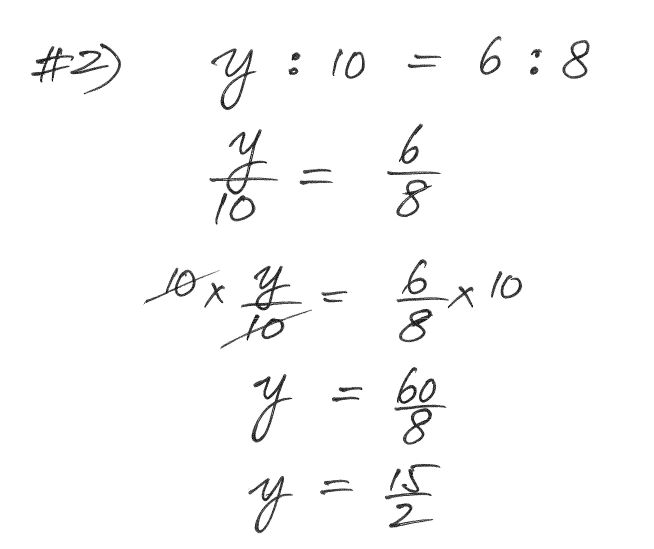 #2) y : 10 = 6 : 8
y/10 = 6/8
10 × y/10 = 6/8 × 10
y = 60/8
y = 15/2